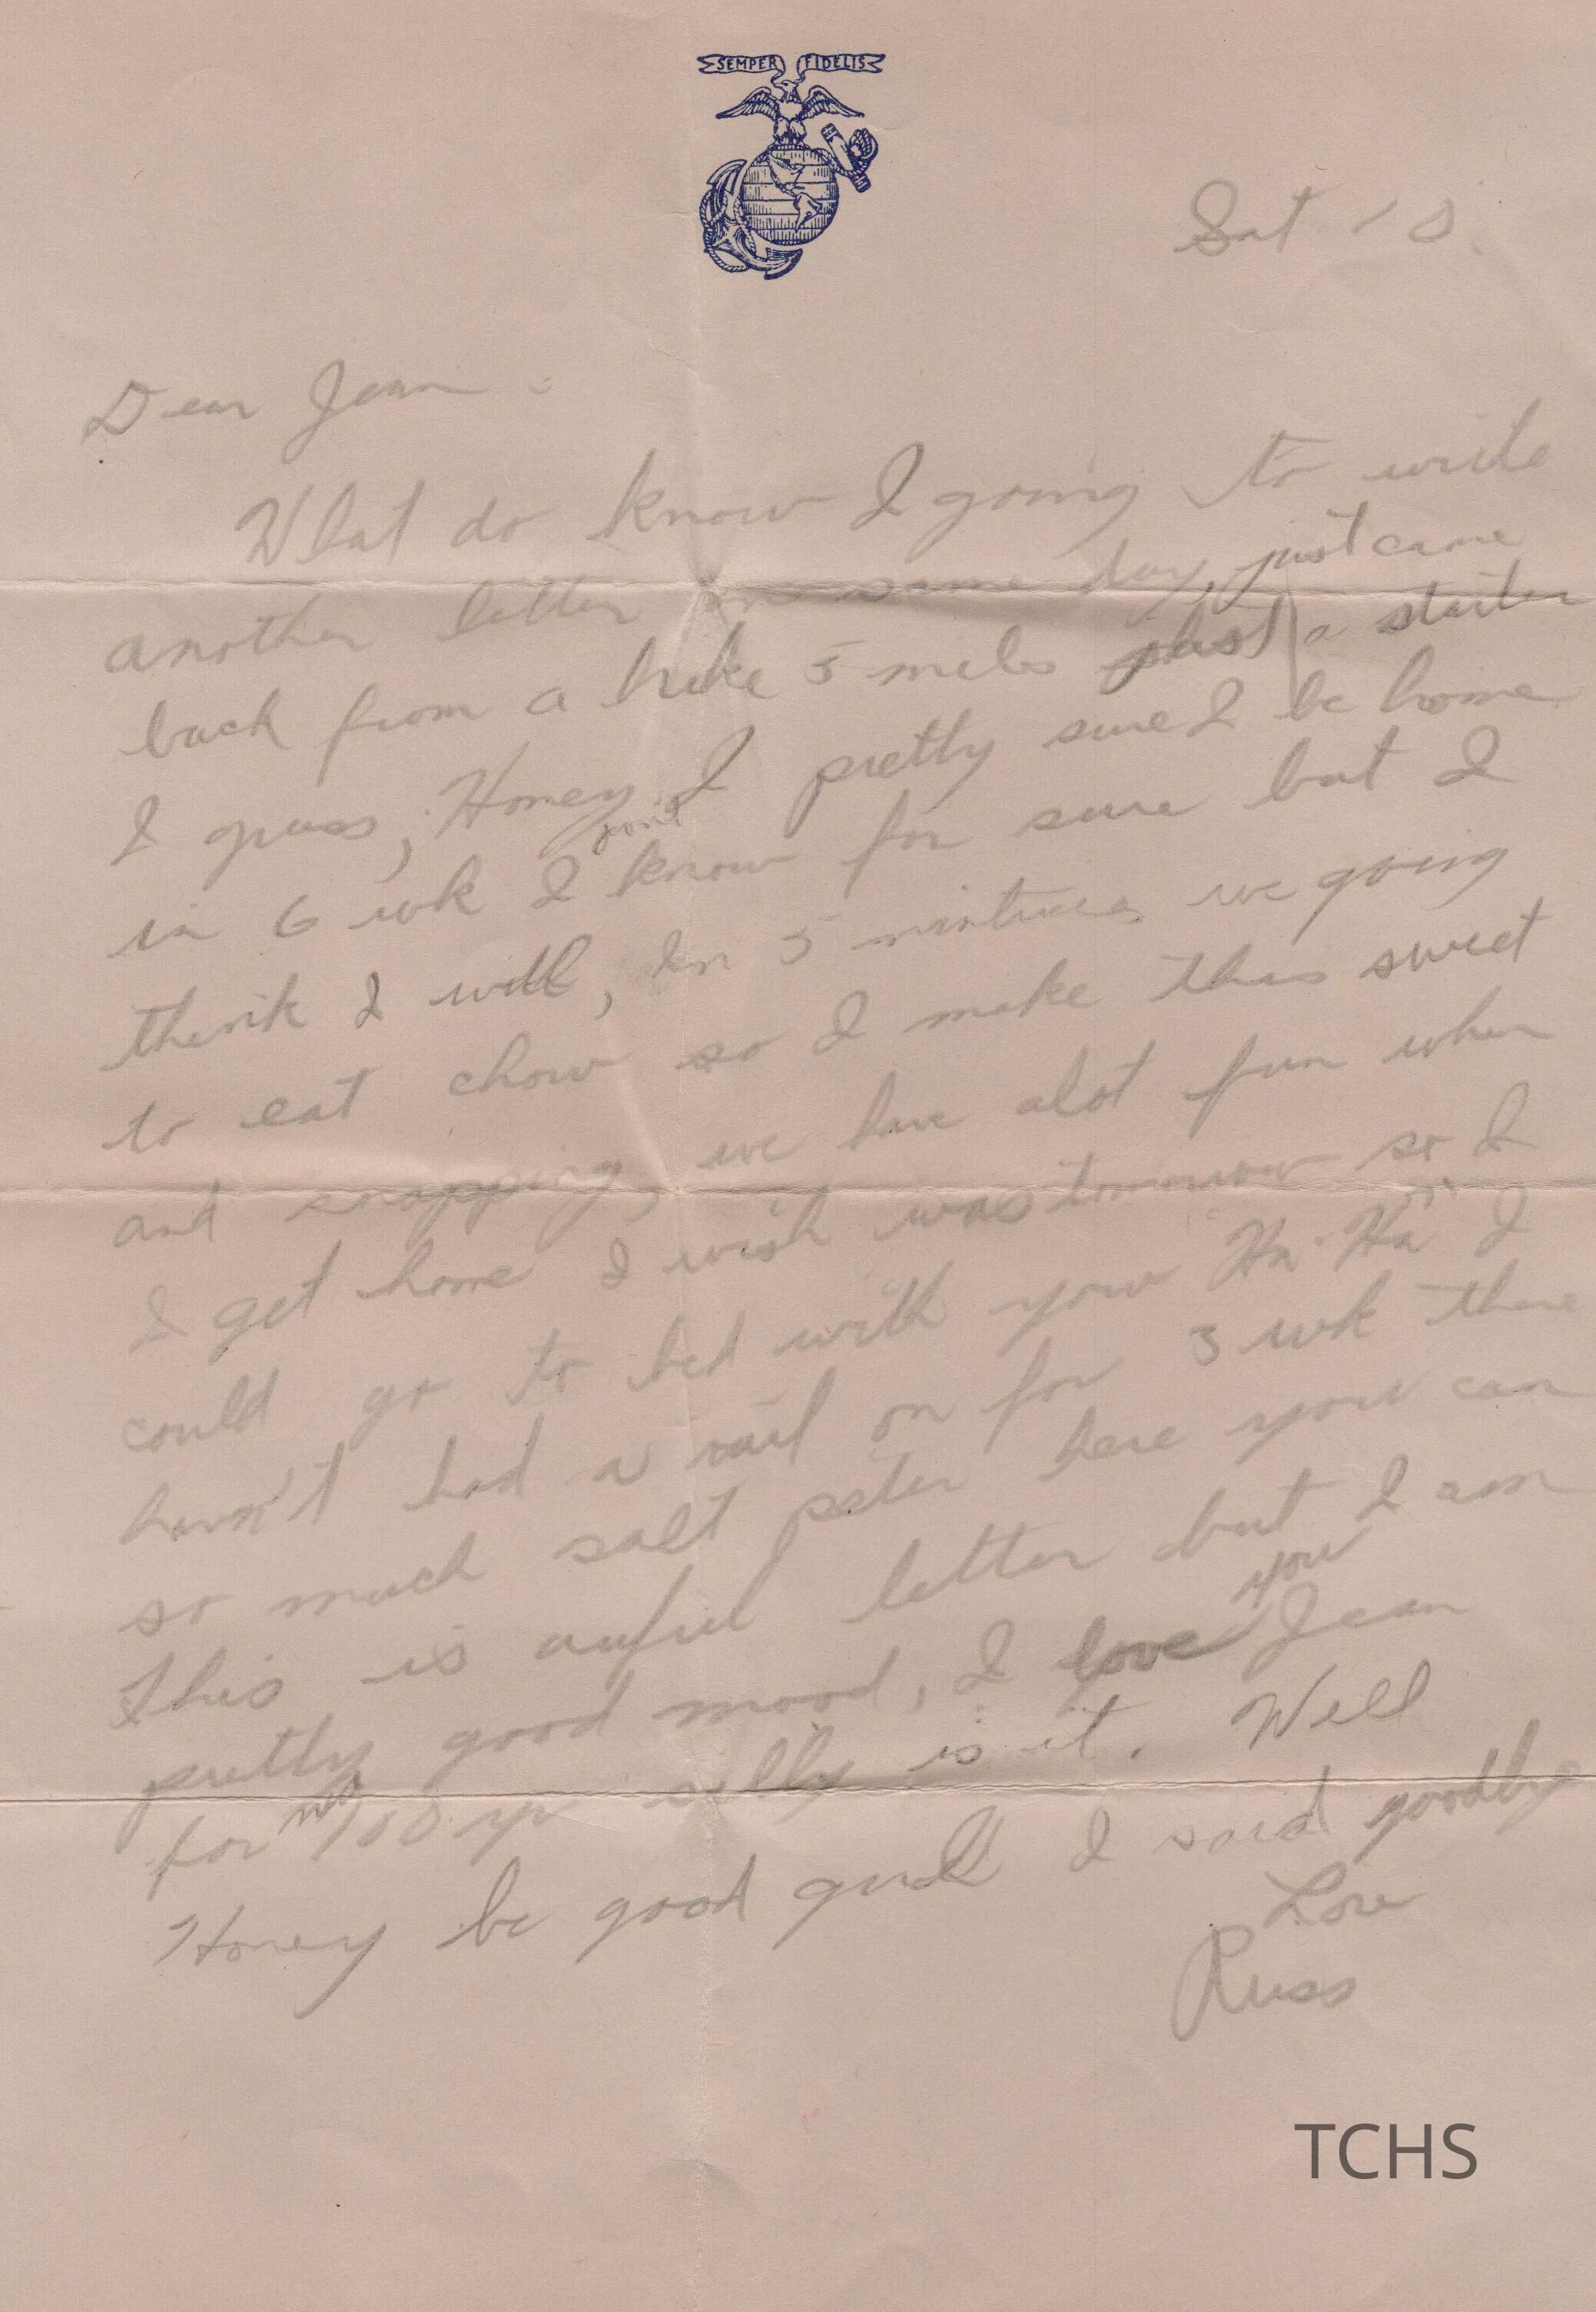 SEMPER FIDELIS
Sat 10
Dear Jean -
What do know I going to write
another letter on same day, just came
back from a hike 5 miles just a starter
I guess, Honey I pretty sure I be home
in 6 wk I don't know for sure but I
think I will, In 5 mintues we going
to eat chow so I make this sweet
and snapping, we have alot fun when
I get home I wish was tomorrow so I
could go to bed with your Ha Ha I
havn't had a rail on for 3 wk there
so much salt peter here your can
this is awful letter but I am
pretty good mood, I love your Jean
for no 100 yr silly is it. Well
Honey be good girll I said goodbye
Love
Russ
TCHS